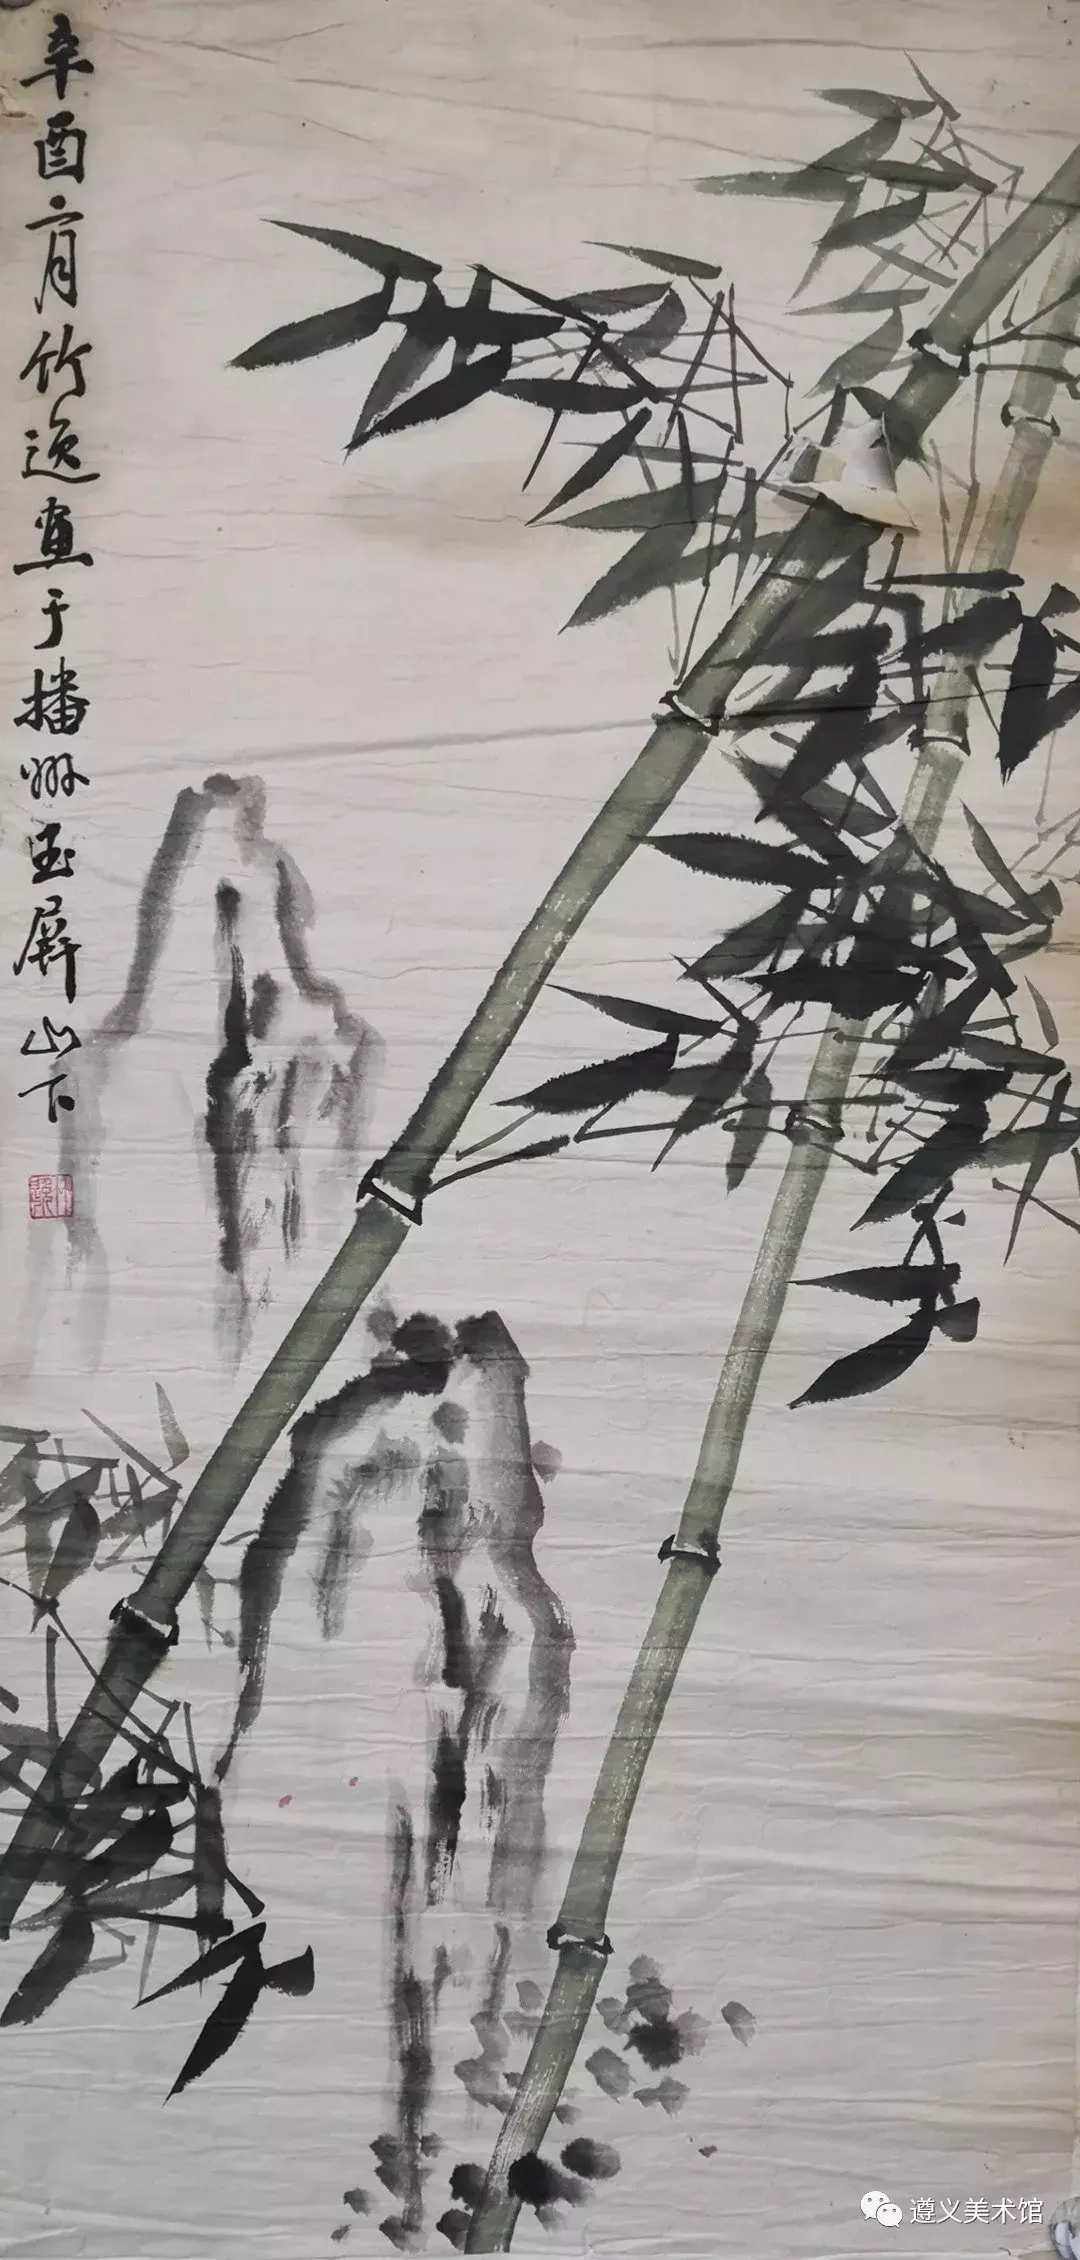 辛酉六月竹逸画于播州玉屏山下
遵义美术馆